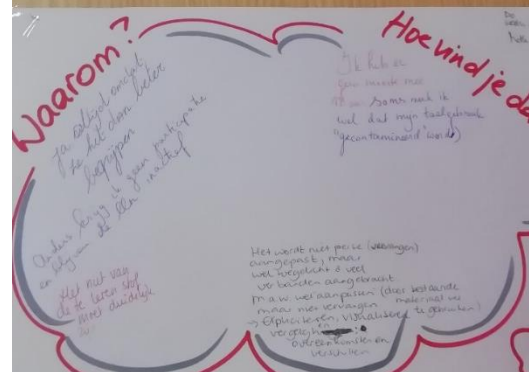 Waarom?
Hoe vind je da
Ja altijd omdat
ze het dan beter
begrijpen
Anders krijg ik geen participatie
en zijn de lln inactief
Het nut van
de te leren stof
moet duidelijk
Ik heb er
geen moeite mee
soms merk ik
wel dat mijn taalgebruik
"gecontamineerd" wordt)
Het wordt niet per se (vervangen)
aangepast, maar
wel toegelicht & veel
verbanden aangebracht
m.a.w. wel aanpassen (door bestaande
maar niet vervangen materiaal
→ Expliciteren, visualiseren te gebruiken)
vergelijken
overeenkomsten en
verschillen